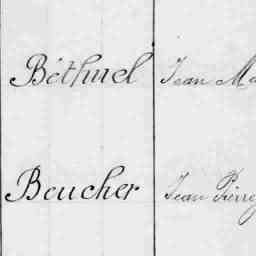 Béthuel Jean Ma
Boucher Jean Pierre